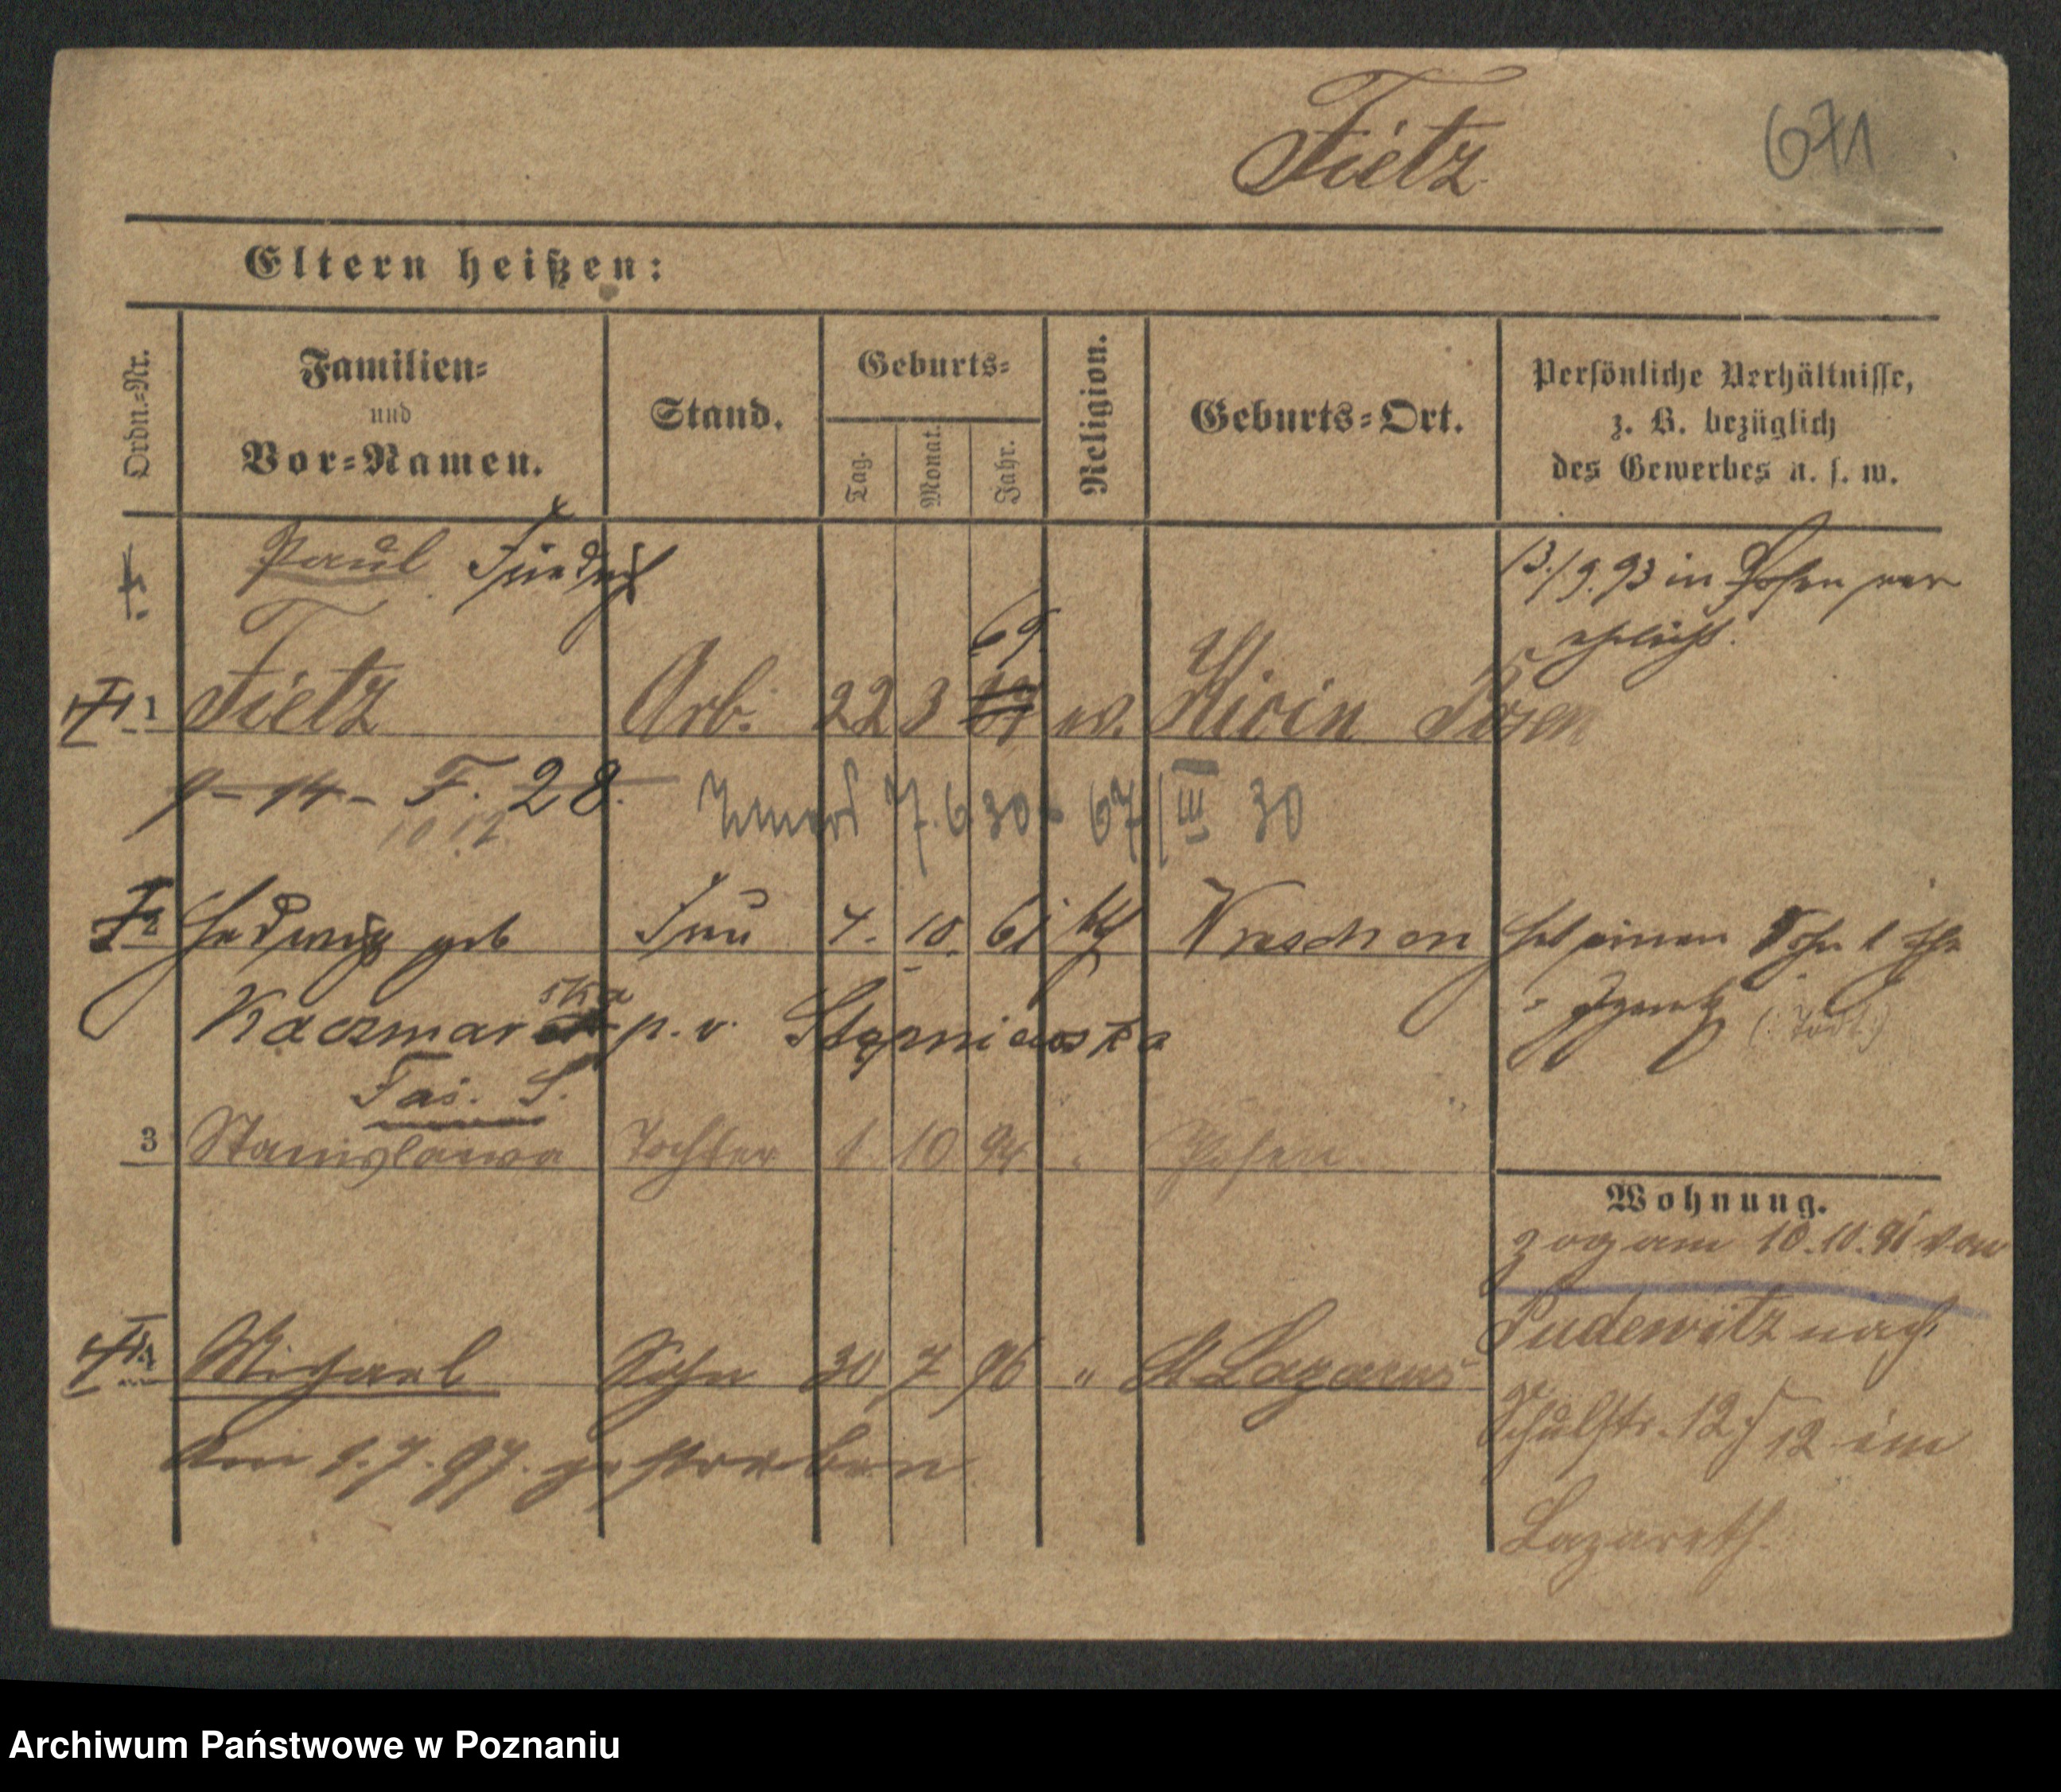 Fietz
671
Eltern heißen:
Ordn.-Nr.
Familien-
und
Vor-Namen.
Stand.
Geburts-
Tag.
Monat.
Jahr.
Religion.
Geburts-Ort.
Persönliche Verhältnisse,
z. B. bezüglich
des Gewerbes u. s. w.
Paul Friedrich
13./9.93 in Posen ver
ehelicht.
69.
1 Fietz Arb. 22 3 ev. Posen
9-14- F. 28.
10.12
7.6.30 67/III 30
2 Hedwig geb Frau 7. 10. 61 kth Wreschen
hat einen Sohn
Kaczmarska p. v. Stępniewska
S.
3 Stanislawa Tochter 1 10 94 " Posen
Wohnung.
zog am 10.10.91 von
Pudewitz nach
4 Michael Sohn 30 7 96 " St Lazarus
Schulstr. 12 12 im
am 9.7.97. gestorben
Lazareth.
Archiwum Państwowe w Poznaniu